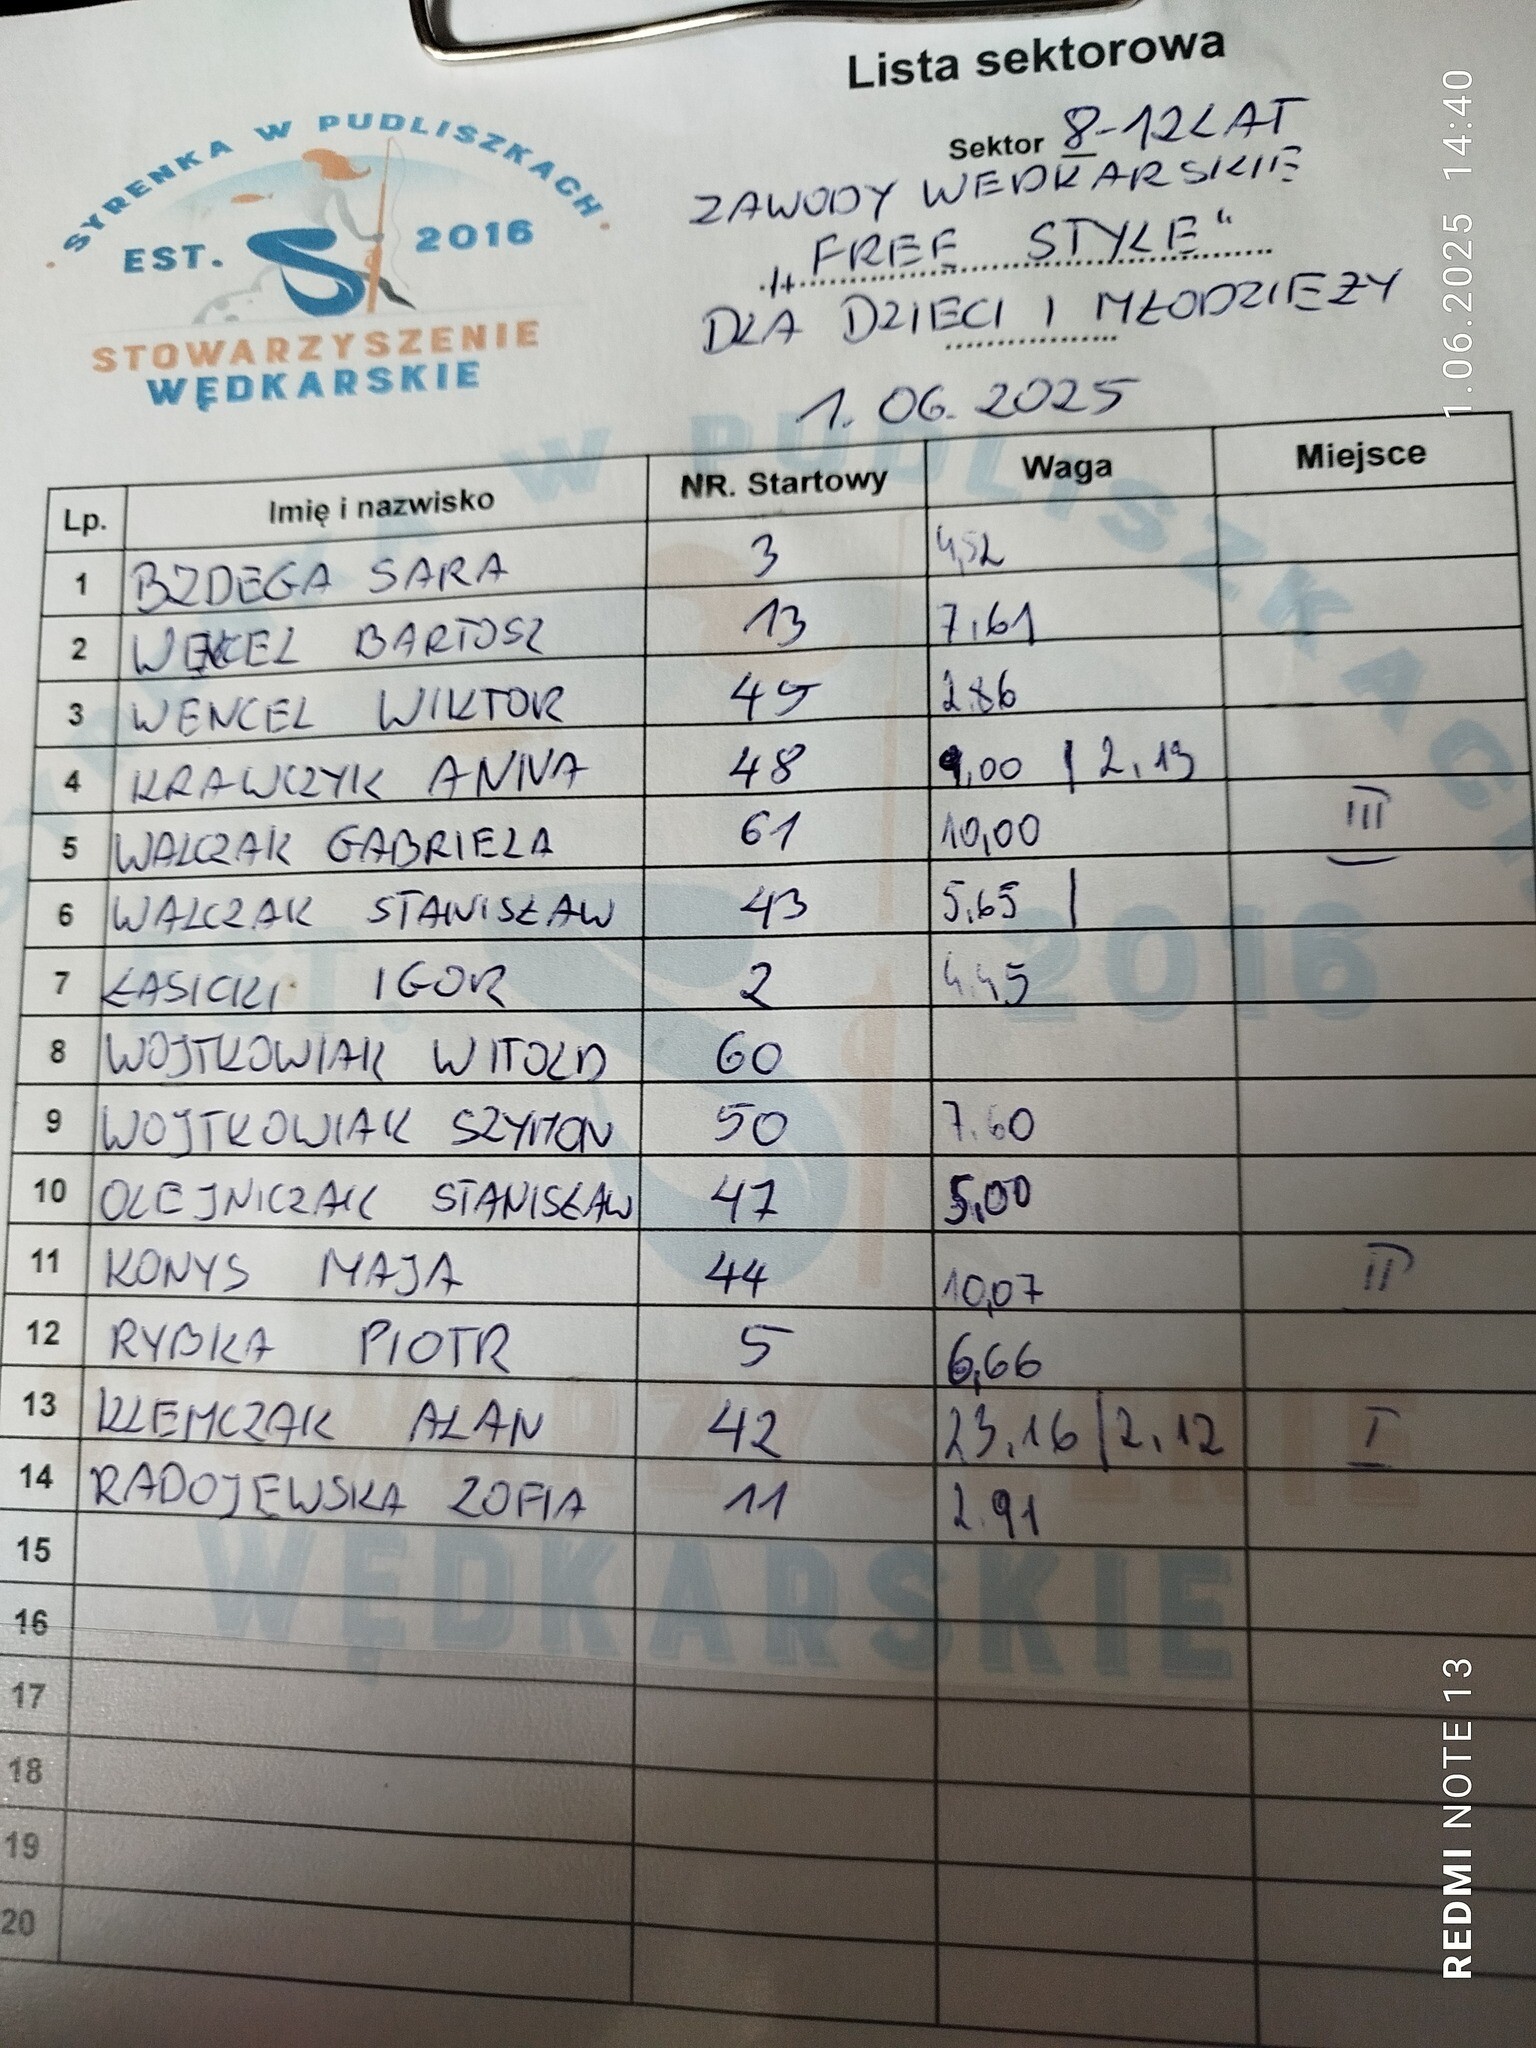 Lista sektorowa
SYRENKA W PUDLISZKACH
EST. 2016
STOWARZYSZENIE
WĘDKARSKIE
Sektor 8-12 LAT
ZAWODY WEDKARSKIE
„FREE STYLE"
DLA DZIECI I MŁODZIEŻY
1.06.2025
Lp. Imię i nazwisko NR. Startowy Waga Miejsce
1 BZDEGA SARA 3 4,52
2 WENCEL BARTOSZ 13 7,61
3 WENCEL WIKTOR 45 2.86
4 KRAWCZYK ANNA 48 9,00 | 2,13
5 WALCZAK GABRIELA 61 10,00 III
6 WALCZAK STANISŁAW 43 5,65 |
7 ŁASICKI IGOR 2 4,45
8 WOJTKOWIAK WITOLD 60
9 WOJTKOWIAK SZYMON 50 7.60
10 OLEJNICZAK STANISŁAW 47 5,00
11 KONYS MAJA 44 10,07 II
12 RYBKA PIOTR 5 6,66
13 KLEMCZAK ALAN 42 23,16 | 2,12 I
14 RADOJEWSKA ZOFIA 11 2.91
15
16
17
18
19
20
W PUDLISZKACH
2016
WĘDKARSKIE
1.06.2025 14:40
REDMI NOTE 13